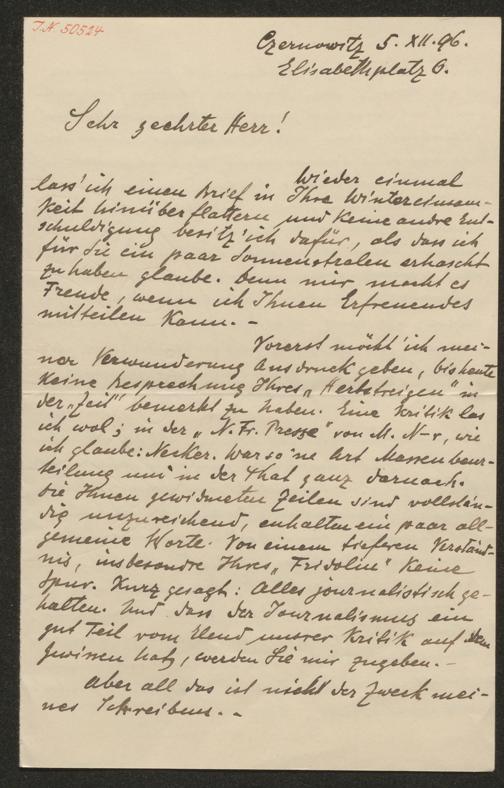 J.N. 50524
Czernowitz 5. XII. 96.
Elisabethplatz 6.
Sehr geehrter Herr!
Wieder einmal
lass' ich einen Brief in Ihre Wintereinsam-
keit hinüberflattern und keine andre Ent-
schuldigung besitz' ich dafür, als dass ich
für Sie ein paar Sonnenstralen erhascht
zu haben glaube. Denn mir macht es
Freude, wenn ich Ihnen Erfreuendes
mitteilen kann. –
Vorerst möcht' ich mei-
ner Verwunderung Ausdruck geben, bis heute
keine Besprechung Ihres „Herbstreigen" in
der „Zeit" bemerkt zu haben. Eine Kritik las
ich wol; in der „N. Fr. Presse" von M. N-r, wie
ich glaube: Necker. War so 'ne Art Massenbeur-
teilung und in der That ganz darnach.
Die Ihnen gewidmeten Zeilen sind vollstän-
dig unzureichend, enhalten ein paar all-
gemeine Worte. Von einem tieferen Verständ-
nis, insbesondre Ihres „Fridolin" keine
Spur. Kurz gesagt: Alles journalistisch ge-
halten. Und dass der Journalismus ein
gut Teil vom Elend unsrer Kritik auf dem
Gewissen hat, werden Sie mir zugeben. –
Aber all das ist nicht der Zweck mei-
nes Schreibens. –